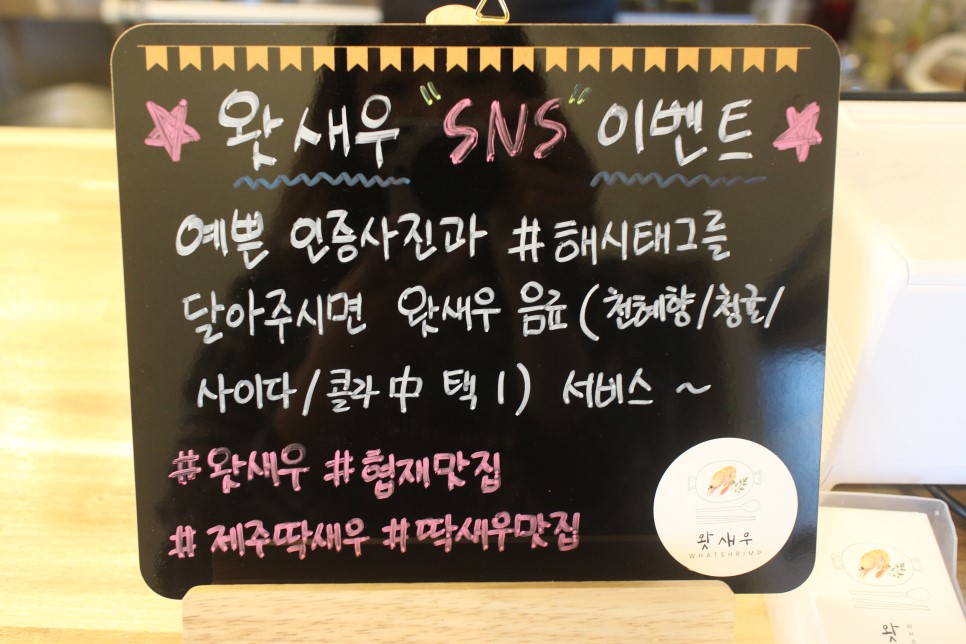 왓새우 "SNS" 이벤트
예쁜 인증사진과 #해시태그를
달아주시면 왓새우 음료(천혜향/청귤/
사이다/콜라 中 택 1) 서비스 ~
#왓새우 #협재맛집
#제주딱새우 #딱새우맛집
왓새우
WHATSHRIMP
왓